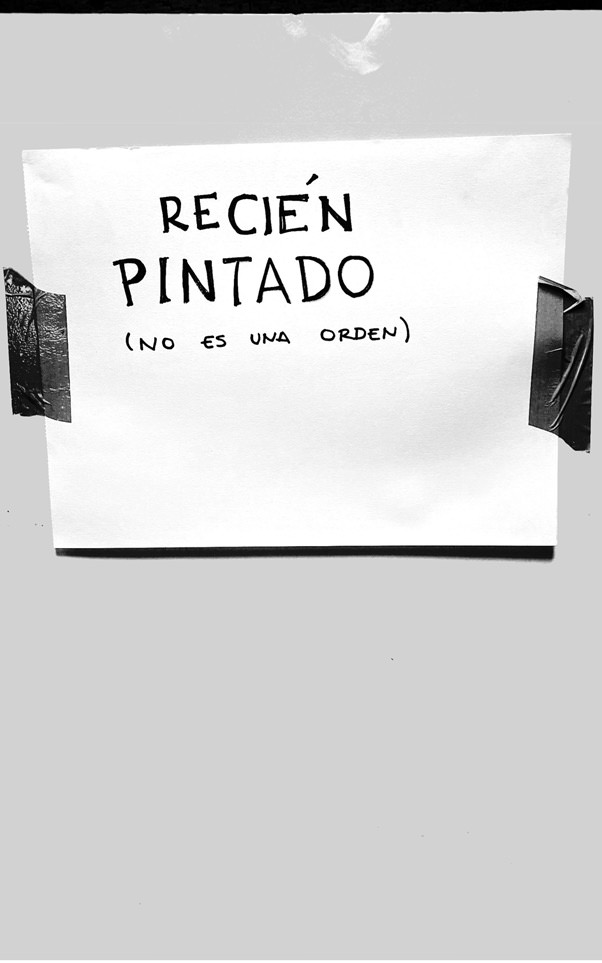 RECIÉN
PINTADO
(NO ES UNA ORDEN)